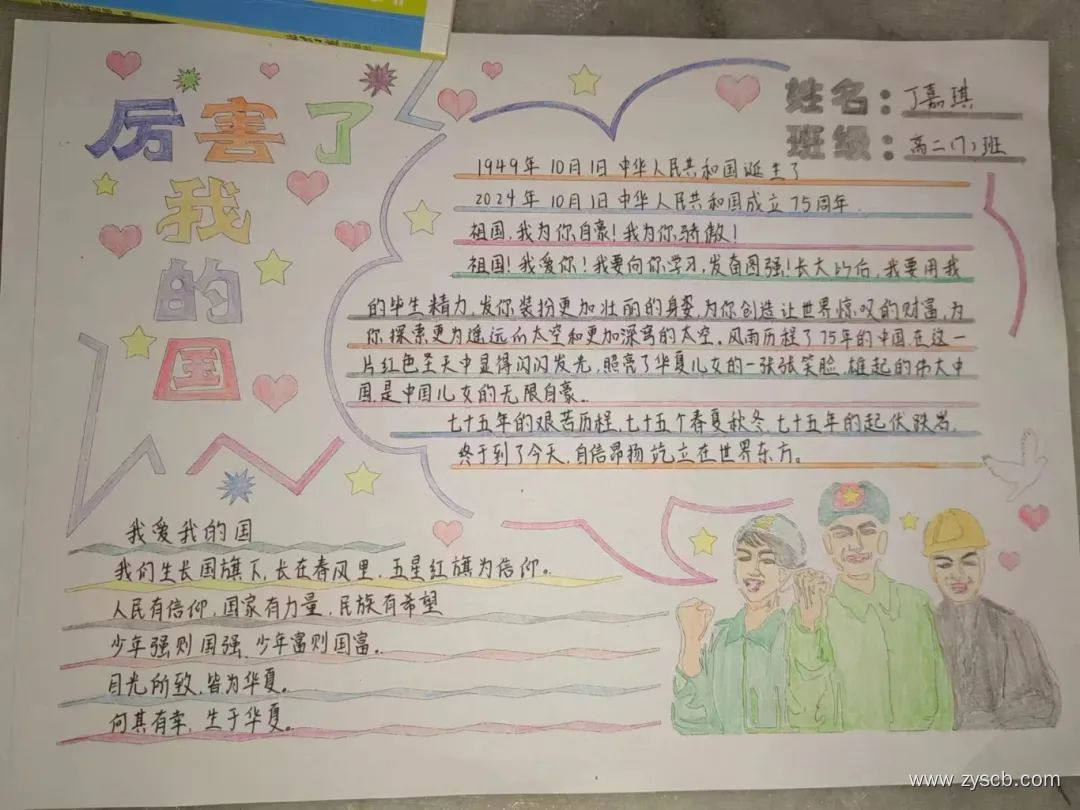 厉害了
我
的
国
姓名：丁嘉琪
班级：高二(7)班
1949年10月1日中华人民共和国诞生了
2024年10月1日中华人民共和国成立75周年.
祖国,我为你自豪!我为你骄傲!
祖国!我爱你!我要向你学习,发奋图强!长大以后,我要用我
的毕生精力,发你装扮更加壮丽的身姿,为你创造让世界惊叹的财富,为
你探索更为遥远爪太空和更加深穹的太空。风雨历程了75年的中国,在这一
片红色圣天中显得闪闪发光,照亮了华夏儿女的一张张笑脸,雄起的伟大中
国,是中国儿女的无限自豪..
七十五年的艰苦历程,七十五个春夏秋冬,七十五年的起伏跌宕,
终于到了今天,自信昂扬屹立在世界东方。
我爱我的国
我们生长国旗下,长在春风里,五星红旗为信仰。
人民有信仰,国家有力量,民族有希望
少年强则国强,少年富则国富..
目光所致,皆为华夏。
何其有幸,生于华夏。
www.zyscb.com